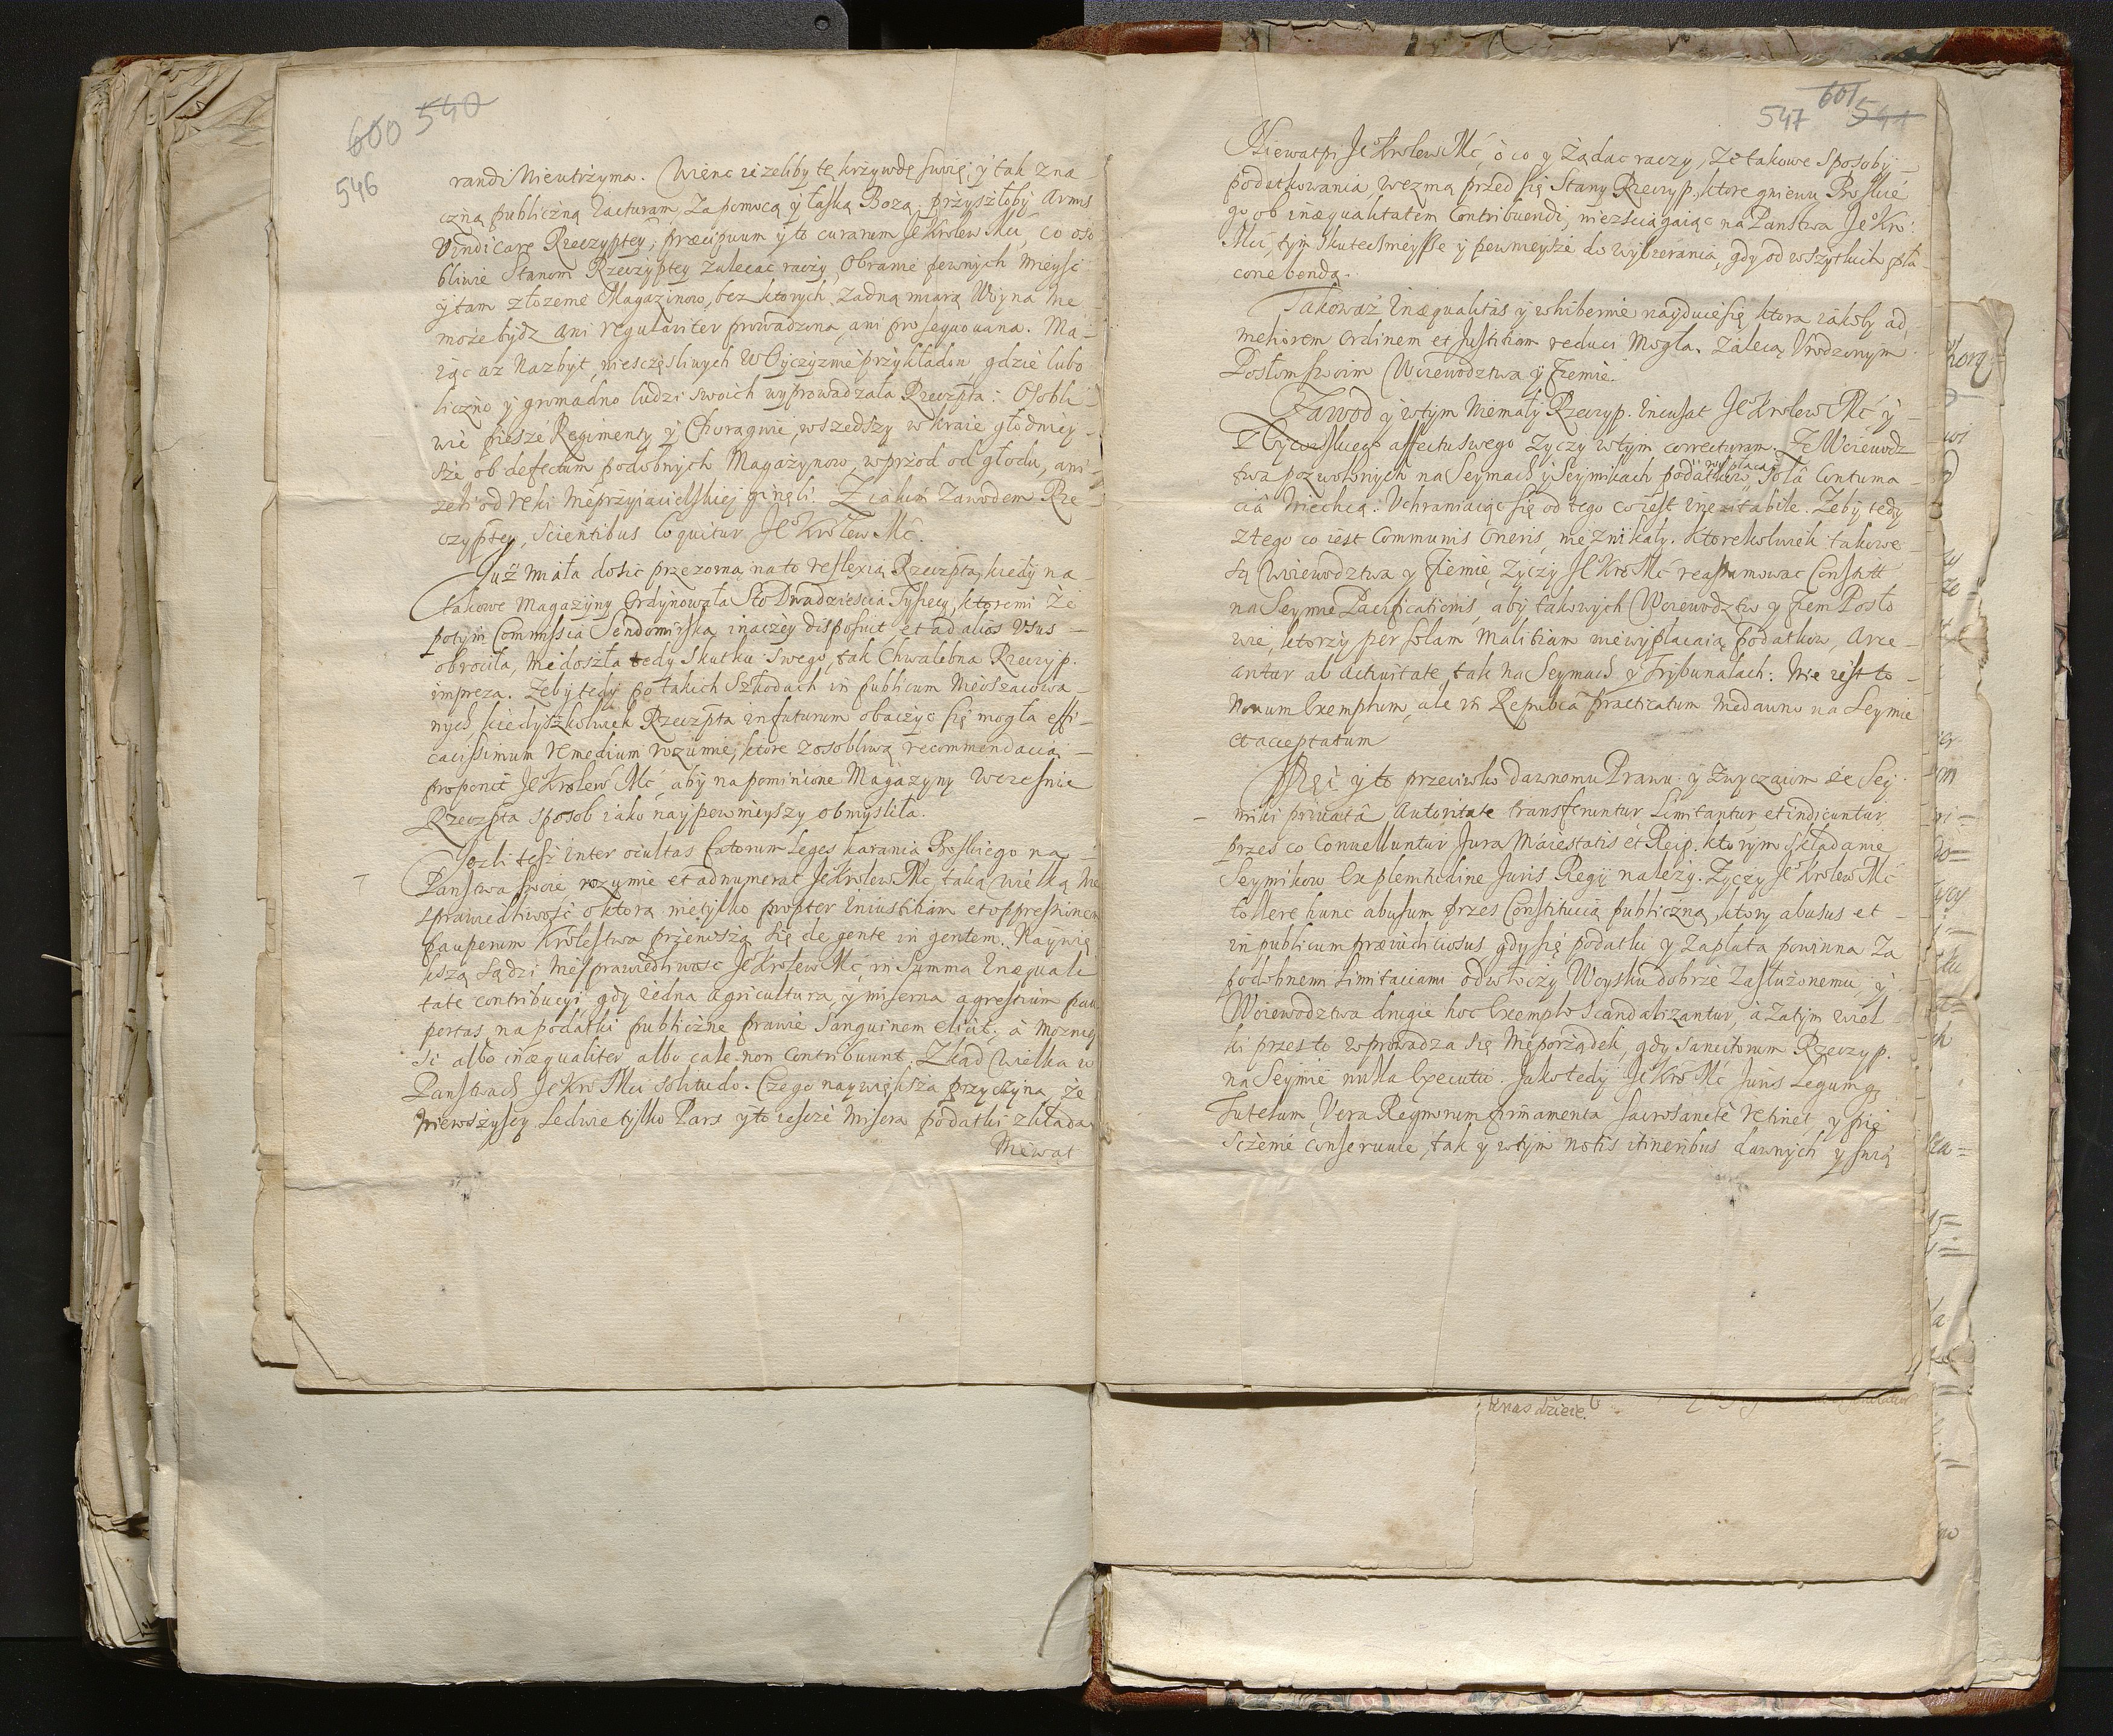 600 540
546
randi nieutrzyma. Więnc ieżeliby tę krzywdę swoię, y tak zna
czną publiczną iacturam, za pomocą y łaską Bozą, przyszłoby Armis
Vindicare Rzeczyptey, præcipuum y to curarum Je° Krolew Mći, co oso
bliwie Stanom Rzeczyptey zalecać raczy, Obranie pewnych mieysc
y tam złozenie Magazinow, bez ktorych żadną miarą Woyna nie
może bydz ani regulariter prowadzona, ani prosequowana. Ma-
iąc az nazbyt niesczęsliwych w Oyczyznie przykładow, gdzie lubo
liczno y gromadno ludzi swoich wyprowadzała Rzeczpta: Osobli-
wie piesze Regimenty y Chorągwie, wszedszy w kraie głodniey-
sze ob defectum podobnych Magazynow, wprzod od głodu, ani-
zeli od ręki nieprzyiacielskiej ginęli. Z iakim zawodem Rze
czyptey, scientibus loquitur Je° Krolew Mć.
Już miała dosić przezorną na to reflexią Rzeczpta, kiedy na-
takowe Magazyny ordynowała Sto Dwadziescia Tysięcy, ktoremi że
potym Commissia Sendomirska inaczey disposuit, et ad alios Usus-
obrociła, niedoszła tedy skutku swego, tak Chwalebna Rzeczyp.
impreza. Żeby tedy po takich szkodach in publicum nieoszacowa-
nych, kiedyszkolwiek Rzeczpta in futurum obaczyc się mogła effi-
cacissimum remedium rozumie, ktore z osobliwą recommendacią-
proponit Je° Krolew Mć, aby na pominione Magazyny wczesnie
Rzeczpta sposob iako naypewnieyszy obmysliła.
Jezli tesz inter ocultas fatorum Leges karania Boskiego na-
Panstwa swoie rozumie et adnumerat Je° Krolew Mć, taką wielką nie
sprawiedliwość o ktorą nietylko propter iniustitiam et oppressionem
pauperum Krolestwa przenoszą się de gente in gentem. Naywię
kszą sądzi niesprawiedliwosc Je° Krolew Mć, in Summa inæquali
tate contribucyi, gdy iedna agricultura, y miserna agrestium pau
pertas, na podatki publiczne prawie sanguinem elicit; à możniey
si albo inæqualiter albo cale non Contribuunt. Zkąd wielka w
Panstwach Je° Kro Mći solitudo. Czego naywiększa przyczyna, że
niewszyscy Ledwie tylko Pars y to iescze misera podatki składa
Niewąt
547 601 541
Niewątpi Je° Krolew Mć, ò co y żądac raczy, że takowe sposoby-
podatkowania, wezmą przed się Stany Rzeczyp, ktore gniewu Boskie
go ob inæqualitatem Contribuendi, nieściągaiąc na Panstwa Je° Kro:
Mći, tym skutecznieysze y pewnieysze do wybierania, gdy od wszytkich pła
cone bendą.
Takoważ inæqualitas y w hibernie nayduie się ktora iakoby ad
meliorem ordinem et Justitiam reduci mogła. Zalecą Urodzonym
Posłom swoim Woiewodztwa y Ziemie.
Zawod y w tym niemały Rzeczyp. incusat Je° Krolew Mć y-
z Oycowskiego affectu swego życzy w tym correcturam. Że Woiewodz
twa pozwolonych na Seymach y Seymikach podatkow wypłacać, solâ Contuma-
ciâ niechcą: Uchraniaiąc się od tego co iest inevitabile. Żeby tedy
z tego co iest Communis oneris, nie znikały. Ktorekolwiek takowe-
są Woiewodztwa y Ziemie, życzy Je° Kro Mć reassumować Constitt
na Seymie Pacificationis, aby takowych Woiewodztw y Ziem Posło
wie, ktorzy per solam malitiam niewypłacaią podatkow, Arce-
antur ab activitate tak na Seymach y Trybunałach. Nie iest to-
novum Exemplum, ale in Republicâ practicatum niedawno na Seymie
et acceptatum
Jest y to przeciwko dawnemu Prawu y Zwyczaiom że Sey-
miki privatâ Autoritate transferuntur Limitantur et indicuntur,
przes co Convelluntur Jura Maiestatis et Reip. ktorym składanie
Seymikow Ex plenitudine Juris Regij należy. Życzy Je° Krolew Mć
tollere hunc abusum przes Constitucią publiczną, ktory abusus et-
in publicum præiudiciosus gdy się podatki y zapłata powinna za
podobnemi Limitaciami odwłoczy Woysku dobrze zasłużonemu, y
Woiewodztwa drugie hoc Exemplo Scandalizantur, à zatym wiel
ki przes to wprowadza się nieporządek, gdy sancitorum Rzeczyp.
na Seymie nulla Executio. Jako tedy Je° Kro Mć Juris Legumq
Tutelam, Vera Regnorum firmamenta sacrosanctè retinet, y pie
sczenie conservuie, tak y w tym notis itineribus dawnych y swią